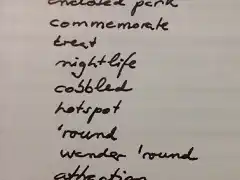 enclosed park
commemorate
treat
nightlife
cobbled
hotspot
'round
wander 'round
attraction